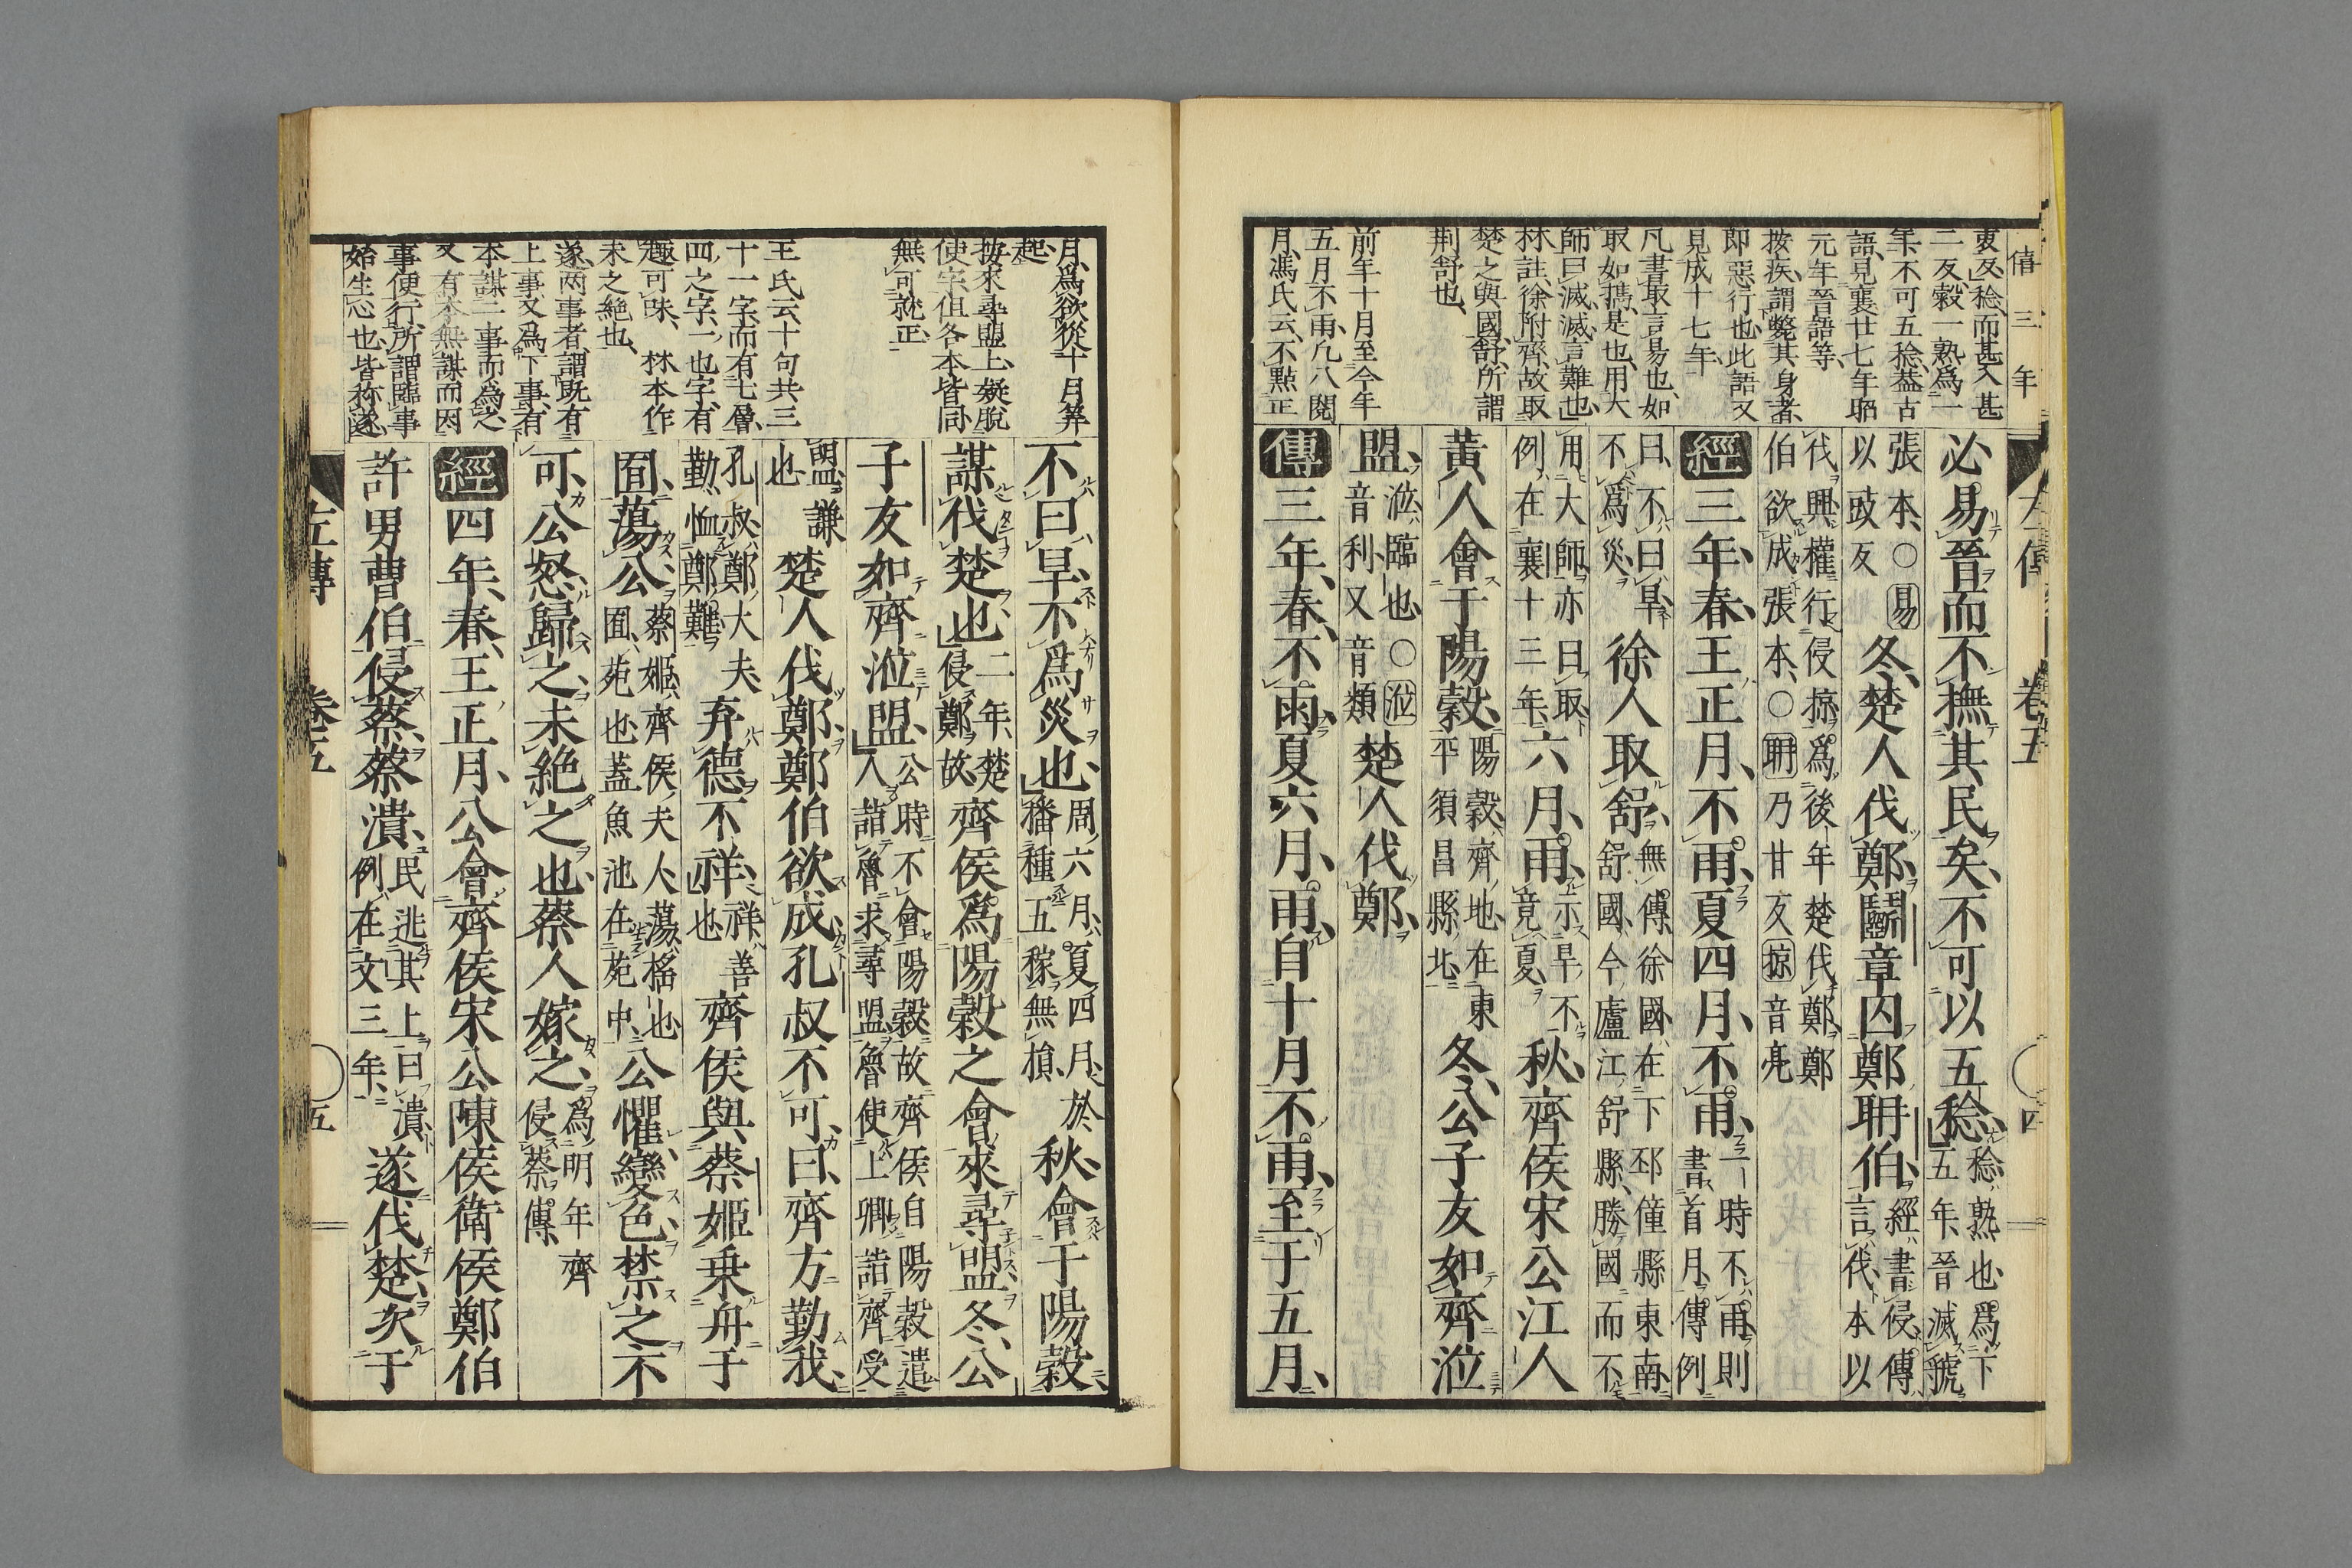 僖三年
左傳 卷五 ○四
叓反稔而甚入甚
二反穀一熟爲一
年不可五稔蓋古
語見襄廿七年昭
元年晉語等
按疾謂斃其身者
即惡行也此語又
見成十七年
凡書取言易也如
取如攜是也用大
師曰滅滅言難也
林註徐附齊故取
楚之與國舒所謂
荆舒也
前年十月至今年
五月不雨凡八閱
月馮氏云不點正
必易晉而不撫其民矣不可以五稔稔熟也爲下五年晉滅虢
張本○易以豉反冬楚人伐鄭鬬章囚鄭聃伯經書侵傳言伐本以
伐興權行侵掠爲後年楚伐鄭鄭伯欲成張本○聃乃甘反掠音亮
經三年春王正月不雨夏四月不雨一時不雨則書首月傳例
曰不曰旱不爲災徐人取舒無傳徐國在下邳僮縣東南舒國今廬江舒縣勝國而不
用大師亦曰取例在襄十三年六月雨示旱不竟夏秋齊侯宋公江人
黃人會于陽穀陽穀齊地在東平須昌縣北冬公子友如齊涖
盟涖臨也○涖音利又音類楚人伐鄭
傳三年春不雨夏六月雨自十月不雨至于五月
月爲欲從十月筭
起
按來尋盟上疑脫
使字但各本皆同
無可就正
王氏云十句共三
十一字而有七層
四之字一也字有
趣可味 林本作
未之絶也
遂兩事者謂既有
上事又爲下事有
本謀二事而爲之
又有本無謀而因
事便行所謂臨事
始生心也皆称遂
不曰旱不爲災也周六月夏四月於播種五稼無損秋會于陽穀
謀伐楚也二年楚侵鄭故齊侯爲陽穀之會來尋盟冬公
子友如齊涖盟公時不會陽穀故齊侯自陽穀遣人詣魯求尋盟魯使上卿詣齊受
盟謙也楚人伐鄭鄭伯欲成孔叔不可曰齊方勤我
孔叔鄭大夫勤恤鄭難弃德不祥祥善也齊侯與蔡姬乗舟于
囿蕩公蔡姬齊侯夫人蕩搖也囿苑也蓋魚池在苑中公懼變色禁之不
可公怒歸之未絶之也蔡人嫁之爲明年齊侵蔡傳
經四年春王正月公會齊侯宋公陳侯衛侯鄭伯
許男曹伯侵蔡蔡潰民逃其上曰潰例在文三年遂伐楚次于
左傳 卷五 ○五